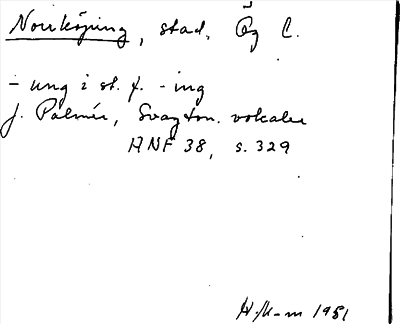 Norrköping, stad, Ög C.
- ung i st. f. - ing
J. Palmér, Svagton. vokaler
ANF 38, s. 329
1981